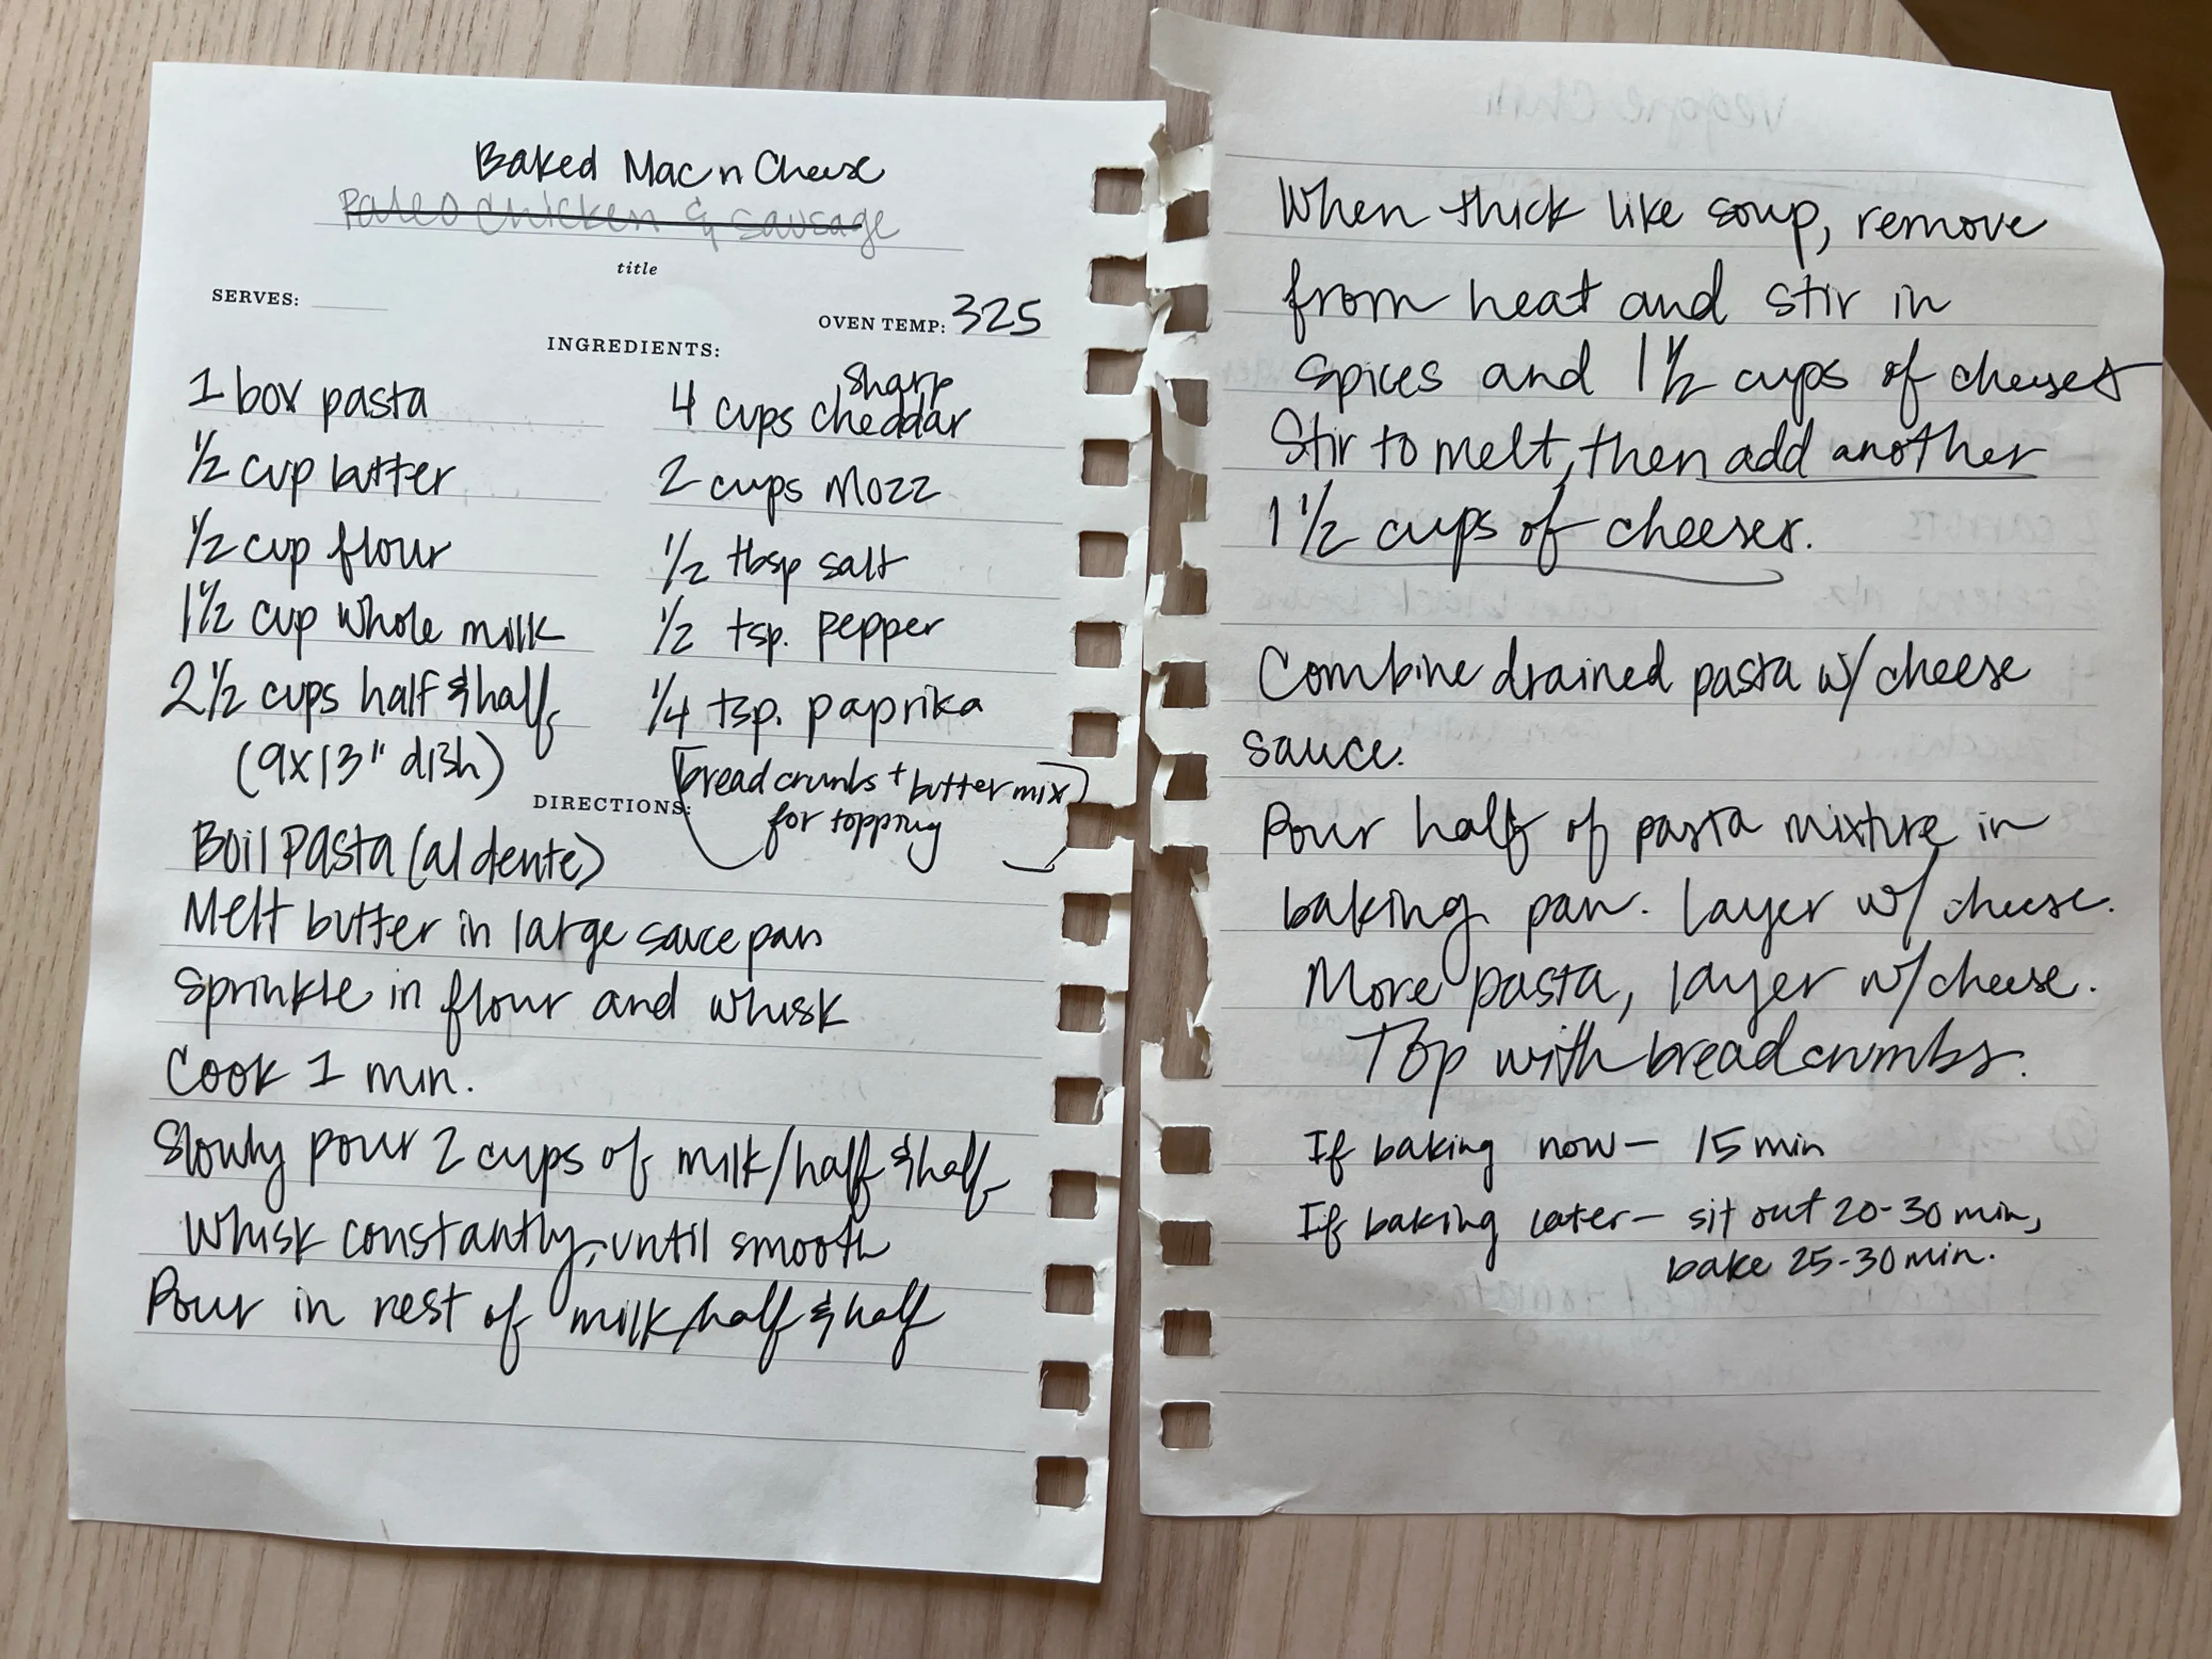 Baked Mac n Cheese
Paleo Chicken & Sausage
title
SERVES:
OVEN TEMP: 325
INGREDIENTS:
1 box pasta
1/2 cup butter
1/2 cup flour
1 1/2 cup whole milk
2 1/2 cups half & half
(9x13" dish)
4 cups sharp cheddar
2 cups mozz
1/2 tbsp salt
1/2 tsp. pepper
1/4 tsp. paprika
bread crumbs + butter mix
for topping
DIRECTIONS:
Boil Pasta (al dente)
Melt butter in large sauce pan
Sprinkle in flour and whisk
Cook 1 min.
Slowly pour 2 cups of milk/half & half
Whisk constantly, until smooth
Pour in rest of milk/half & half
Veggie Chili
When thick like soup, remove
from heat and stir in
spices and 1 1/2 cups of cheeses
Stir to melt, then add another
1 1/2 cups of cheeses.
Combine drained pasta w/ cheese
sauce.
Pour half of pasta mixture in
baking pan. layer w/ cheese.
More pasta, layer w/ cheese.
Top with breadcrumbs.
If baking now - 15 min
If baking later - sit out 20-30 min,
bake 25-30 min.